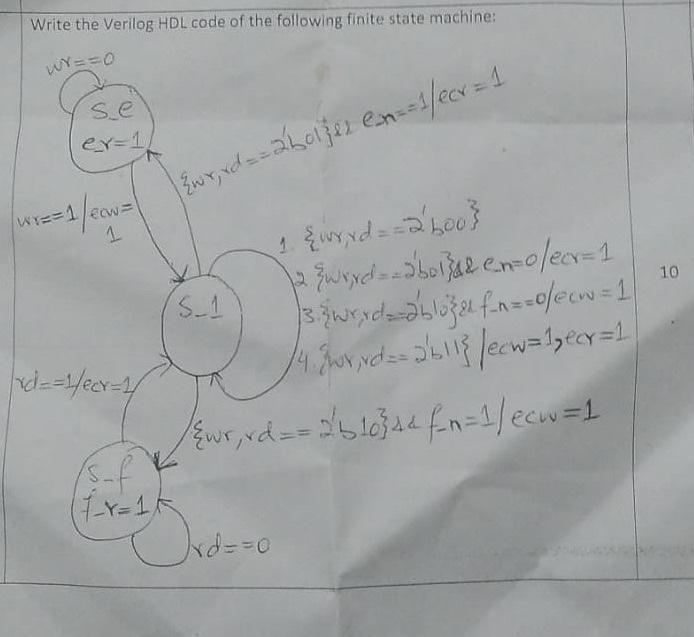 Write the Verilog HDL code of the following finite state machine:
wr==0
s_e
e_r=1
{wr,rd==2'b01}&& e_n==1/ecr=1
wr==1/ecw=
1
1. {wr,rd==2'b00}
2 {wr,rd==2'b01}&& e_n=0/ecr=1
10
s_1
3.{wr,rd==2'b10}&& f_n==0/ecw=1
4.{wr,rd==2'b11} /ecw=1,ecr=1
rd==1/ecr=1
{wr,rd==2'b10}&& f_n=1/ecw=1
s_f
f_r=1
rd==0